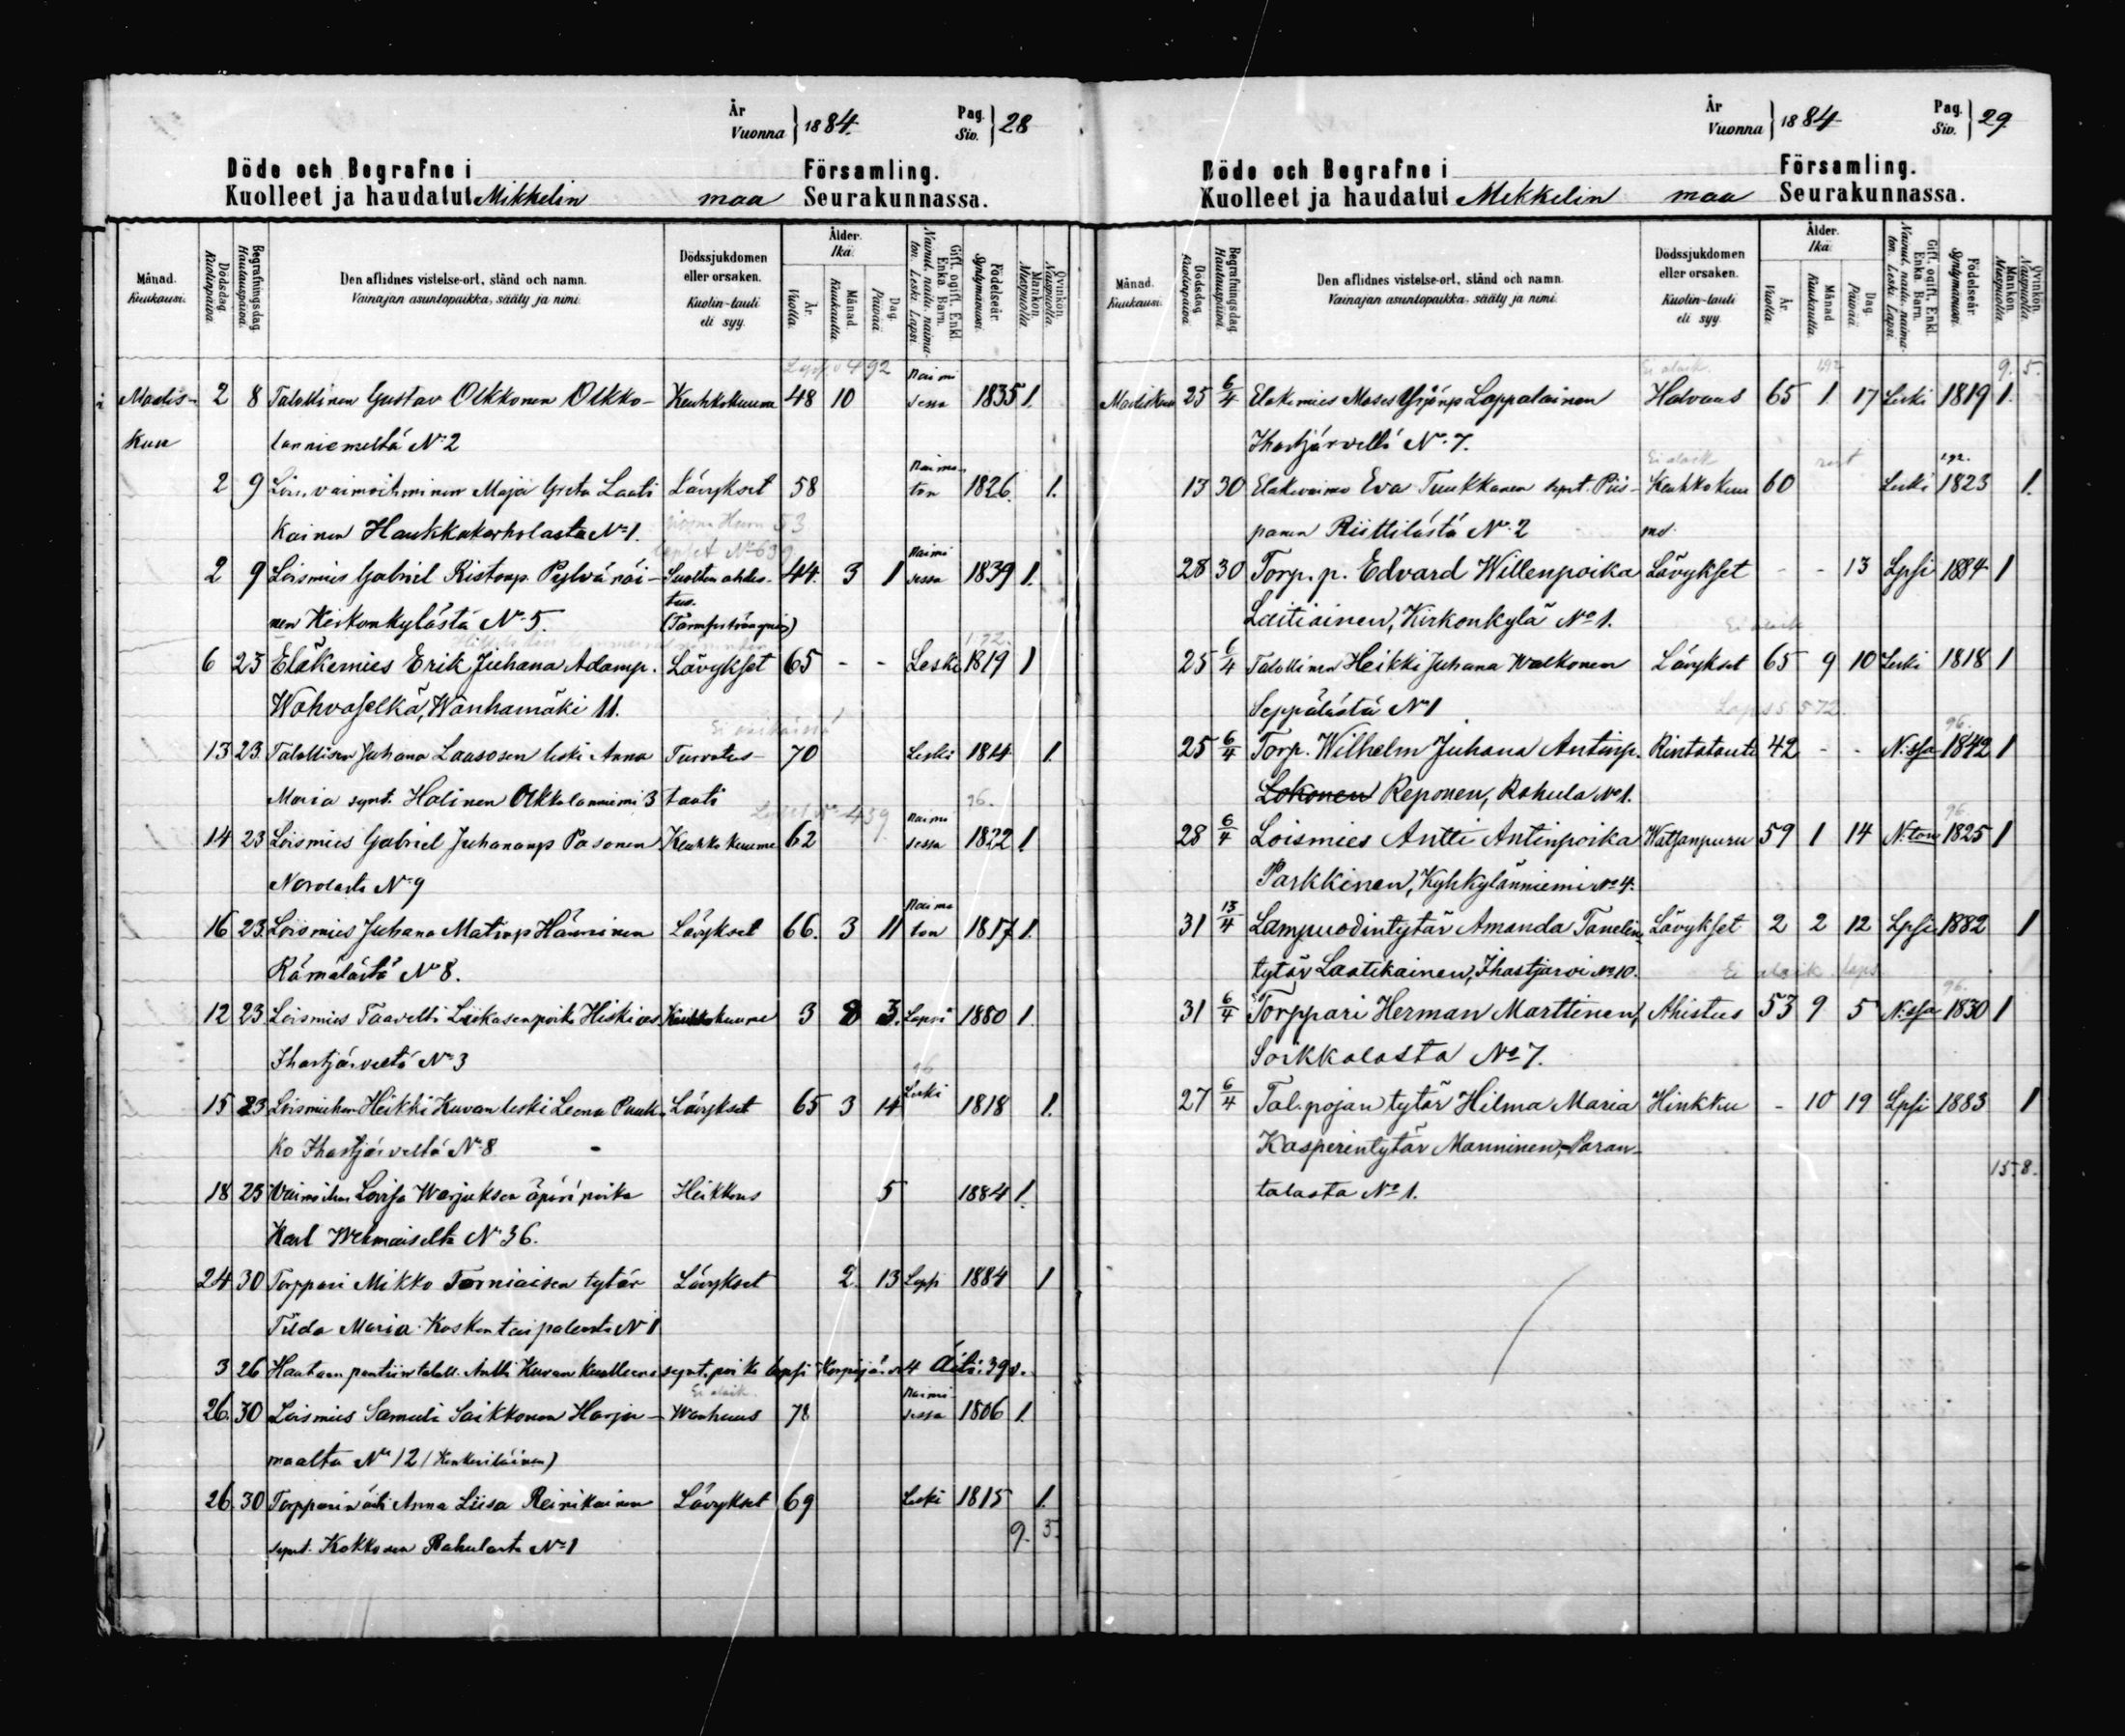 År Vuonna } 1884. Pag. Siv. } 28
Döde och Begrafne i Församling.
Kuolleet ja haudatut Mikkelin maa Seurakunnassa.
Månad. Kuukausi.
Dödsdag. Kuolinpäivä.
Begrafningsdag. Hautauspäivä.
Den aflidnes vistelse-ort, stånd och namn. Vainajan asuntopaikka, sääty ja nimi.
Dödssjukdomen eller orsaken. Kuolin-tauti eli syy.
Ålder. Ikä.
År. Vuotta.
Månad. Kuukautta.
Dag. Päivää.
Gift, ogift, Enkl. Enka. Barn. Nainut, naitu, naimaton. Leski. Lapsi.
Födelseår. Syntymävuosi.
Mankön. Miespuolta.
Qvinkön. Naispuolta.
Maalis- 2 8 Talollinen Gustav Olkkonen Olkko- Keuhkokuume 48 10 naimi sessa 1835 1.
kuu lanniemeltä No 2
2 9 Lois. vaimoihminen Maja Greta Laati Lävykset 58 naima ton 1826. 1.
kainen Haukkakorholasta No 1.
2 9 Loismies Gabriel Ristonp. Pylvänäi- Suolten ahdis- 44. 3 1 naimi sessa 1839 1.
tus.
nen Kirkonkylästä No 5.
6 23 Eläkemies Erik Juhana Adamp. Lävykset 65 - - Leski 1819 1
Wohvaselkä, Wanhamäki 11.
13 23. Talollisen Juhana Laasosen leski Anna Turvotus- 70 Leski 1814 1.
Maria synt. Halinen Olkkolanniemi 3 tauti
14 23 Loismies Gabriel Juhananp Pasonen Keuhko kuume 62 naimi sessa 1822 1.
Norolasta No 9
16 23. Loismies Juhana Matinp Hänninen Lävykset 66. 3 11 naima ton 1817 1.
Rämälästä No 8.
12 23 Loismies Taavetti Liikasen poika Hiskias Keuhkokuume 3 8 3. Lapsi 1880 1.
Ihastjärveltä No 3
15 23 Loismiehen Heikki Kuvan leski Leena Puuk- Lävykset 65 3 14 Leski 1818 1.
ko Ihastjärveltä No 8
18 23 Vaimoihm Lovisa Warjuksen äpärä poika Heikkous 5 1884 1.
Karl Wehmaiselta No 36.
24 30 Torppari Mikko Torniaisen tytär Lävykset 2. 13 Lapsi 1884 1
Tilda Maria Koskentaipaleesta No 1
3 26 Hautaan pantiin taloll. Antti Kuvan kuolleena synt. poika lapsi Korpijär. 4 Äiti: 39 v.
26. 30 Loismies Samuli Saikkonen Harju- Wanhuus 78 naimi sessa 1806 1.
maalta No 12
26 30 Torpparin äiti Anna Liisa Reinikainen Lävykset 69 Leski 1815 1.
9. 5.
synt. Kokkosen Rahulasta No 1
År Vuonna } 1884 Pag. Siv. } 29
Döde och Begrafne i Församling.
Kuolleet ja haudatut Mikkelin maa Seurakunnassa.
Månad. Kuukausi.
Dödsdag. Kuolinpäivä.
Begrafningsdag. Hautauspäivä.
Den aflidnes vistelse-ort, stånd och namn. Vainajan asuntopaikka, sääty ja nimi.
Dödssjukdomen eller orsaken. Kuolin-tauti eli syy.
Ålder. Ikä.
År. Vuotta.
Månad. Kuukautta.
Dag. Päivää.
Gift, ogift, Enkl. Enka. Barn. Nainut, naitu, naimaton. Leski. Lapsi.
Födelseår. Syntymävuosi.
Mankön. Miespuolta.
Qvinkön. Naispuolta.
9. 5.
Maaliskuu 25 6/4 Eläkemies Moses Yrjönp Lappalainen Halvaus 65 1 17 Leski 1819 1.
Ihastjärveltä No 7.
13 30 Eläkevaimo Eva Tuukkanen synt. Piis- Keuhkokuu 60 Leski 1823 1.
panen Riittilästä No 2
28 30 Torp. p. Edvard Willenpoika Lävykset - - 13 Lpsi 1884 1
Laitiainen, Kirkonkylä No 1.
25 6/4 Talollinen Heikki Juhana Walkonen Lävykset 65 9 10 Leski 1818 1
Seppälästä No 1
25 6/4 Torp. Wilhelm Juhana Antinp. Rintatauti 42 - - N:ssa 1842 1
Lokonen Reponen, Rahula No 1.
28 6/4 Loismies Antti Antinpoika Watsanpuru 59 1 14 N:ton 1825 1
Parkkinen, Kyhkylänniemi No 4.
31 13/4 Lampuodintytär Amanda Tanelin- Lävykset 2 2 12 Lpsi 1882 1
tytär Laatikainen, Ihastjärvi No 10.
31 6/4 Torppari Herman Marttinen, Ahistus 53 9 5 N:ssa 1830 1
Soikkalasta No 7.
27 6/4 Tal. pojan tytär Hilma Maria Hinkku - 10 19 Lpsi 1883 1
Kasperintytär Manninen, Paran-
15. 8.
talasta No 1.